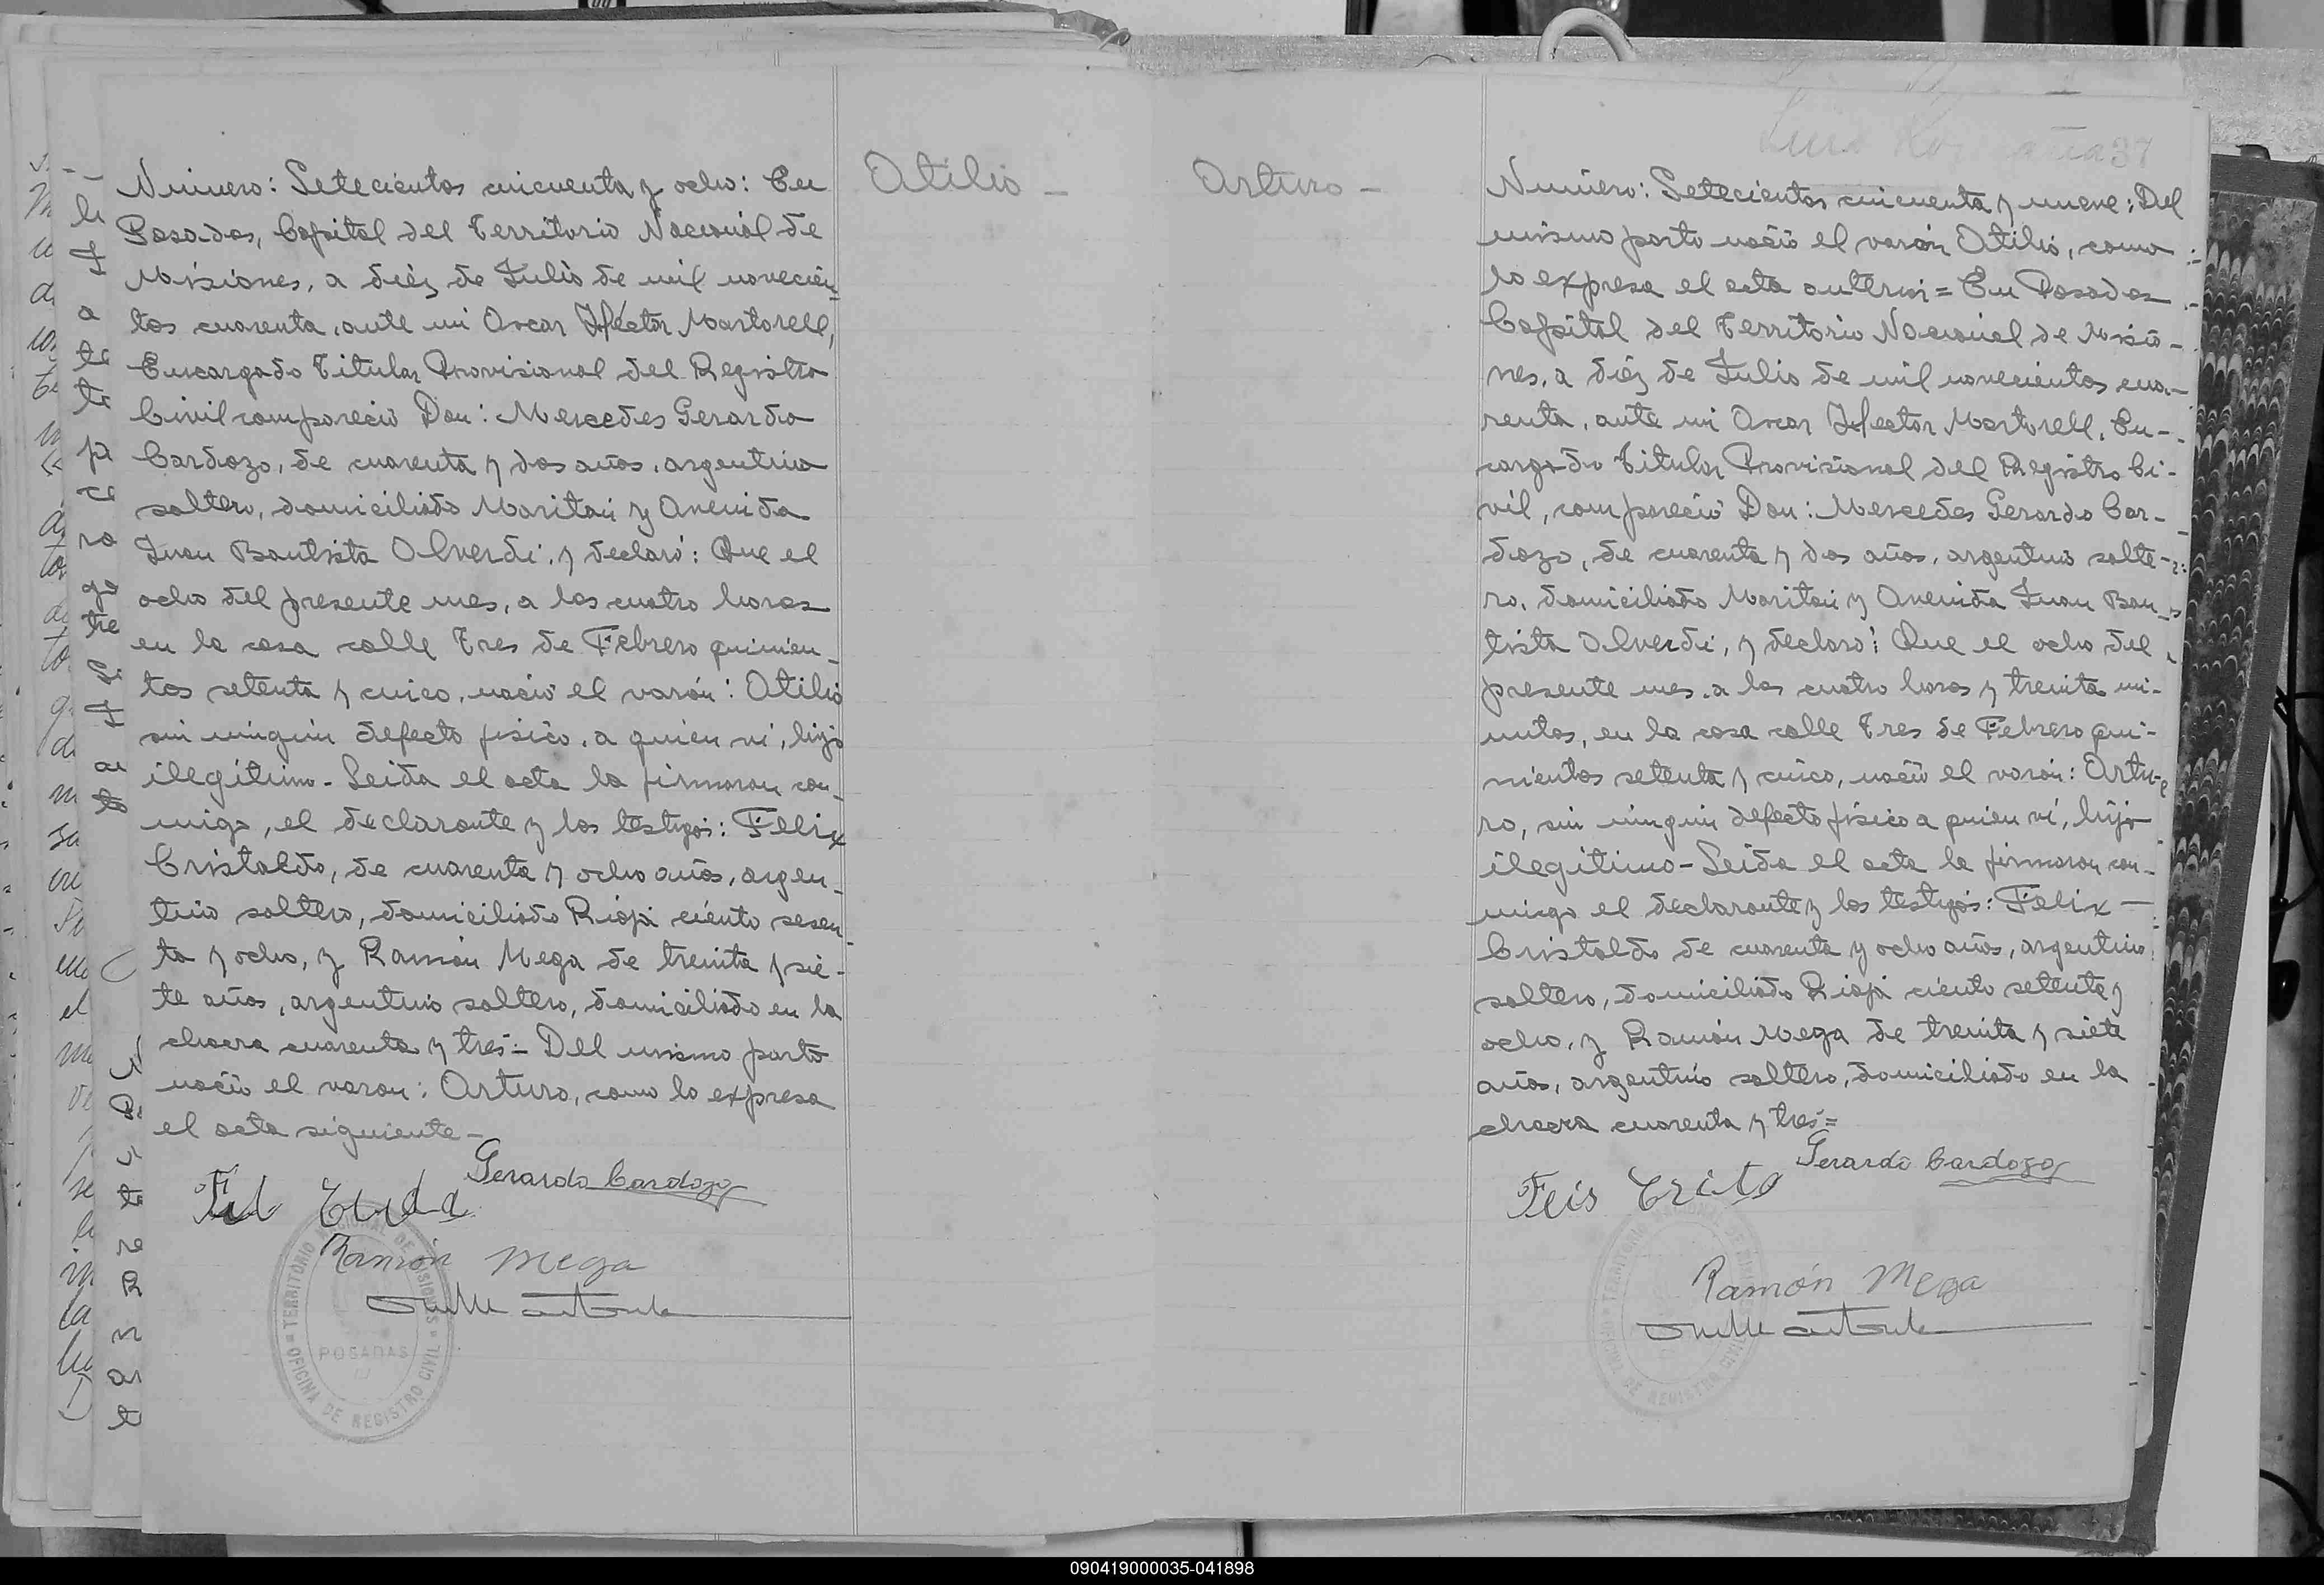 Número: Setecientos cincuenta y ocho: En
Posadas, Capital del Territorio Nacional de
Misiones, a diéz de Julio de mil novecien-
tos cuarenta, ante mi Oscar Héctor Martorell,
Encargado Titular Provisional del Registro
Civil compareció Don: Mercedes Gerardo
Cardozo, de cuarenta y dos años, argentino
soltero, domiciliado Maritain y Avenida
Juan Bautista Alverdi, y declaró: Que el
ocho del presente mes, a las cuatro horas
en la casa calle Tres de Febrero quinien-
tos setenta y cinco, nació el varón: Atilio
sin ningún defecto fisico, a quien vi, hijo
ilegítimo - Leida el acta la firmaron con-
migo, el declarante y los testigos: Felix
Cristaldo, de cuarenta y ocho años, argen-
tino soltero, domiciliado Rioja ciento sesen-
ta y ocho, y Ramón Mega de treinta y sie-
te años, argentino soltero, domiciliado en la
chacra cuarenta y tres = Del mismo parto
nació el varon: Arturo, como lo expresa
el acta siguiente -
Gerardo Cardozo
Ramón Mega
TERRITORIO NACIONAL DE MISIONES
POSADAS
OFICINA DE REGISTRO CIVIL
Atilio -
Arturo -
37
Número: Setecientos cincuenta y nueve: Del
mismo parto nació el varón Atilio, como
lo expresa el acta anterior = En Posadas
Capital del Territorio Nacional de Misio-
nes, a diéz de Julio de mil novecientos cua-
renta, ante mi Oscar Hector Martorell, En-
cargado Titular Provisional del Registro Ci-
vil, compareció Don: Mercedes Gerardo Car-
dozo, de cuarenta y dos años, argentino solte-
ro, domiciliado Maritain y Avenida Juan Bau-
tista Alverdi, y declaró: Que el ocho del
presente mes, a las cuatro horas y treinta mi-
nutos, en la casa calle Tres de Febrero qui-
nientos setenta y cinco, nació el varón: Artu-
ro, sin ningún defecto físico a quien ví, hijo
ilegítimo - Leida el acta la firmaron con-
migo el declarante y los testigos: Felix
Cristaldo de cuarenta y ocho años, argentino
soltero, domiciliado Rioja ciento setenta y
ocho, y Ramón Mega de treinta y siete
años, argentino soltero, domiciliado en la
chacra cuarenta y tres =
Gerardo Cardozo
Ramón Mega
OFICINA DE REGISTRO CIVIL
090419000035-041898